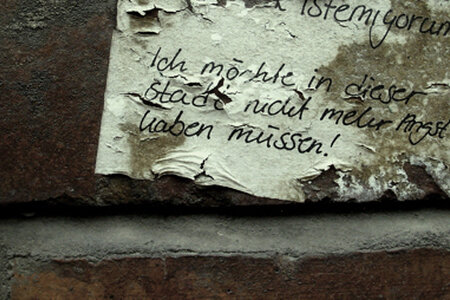 istemiyorum
Ich möchte in dieser
Stadt nicht mehr Angst
haben müssen!